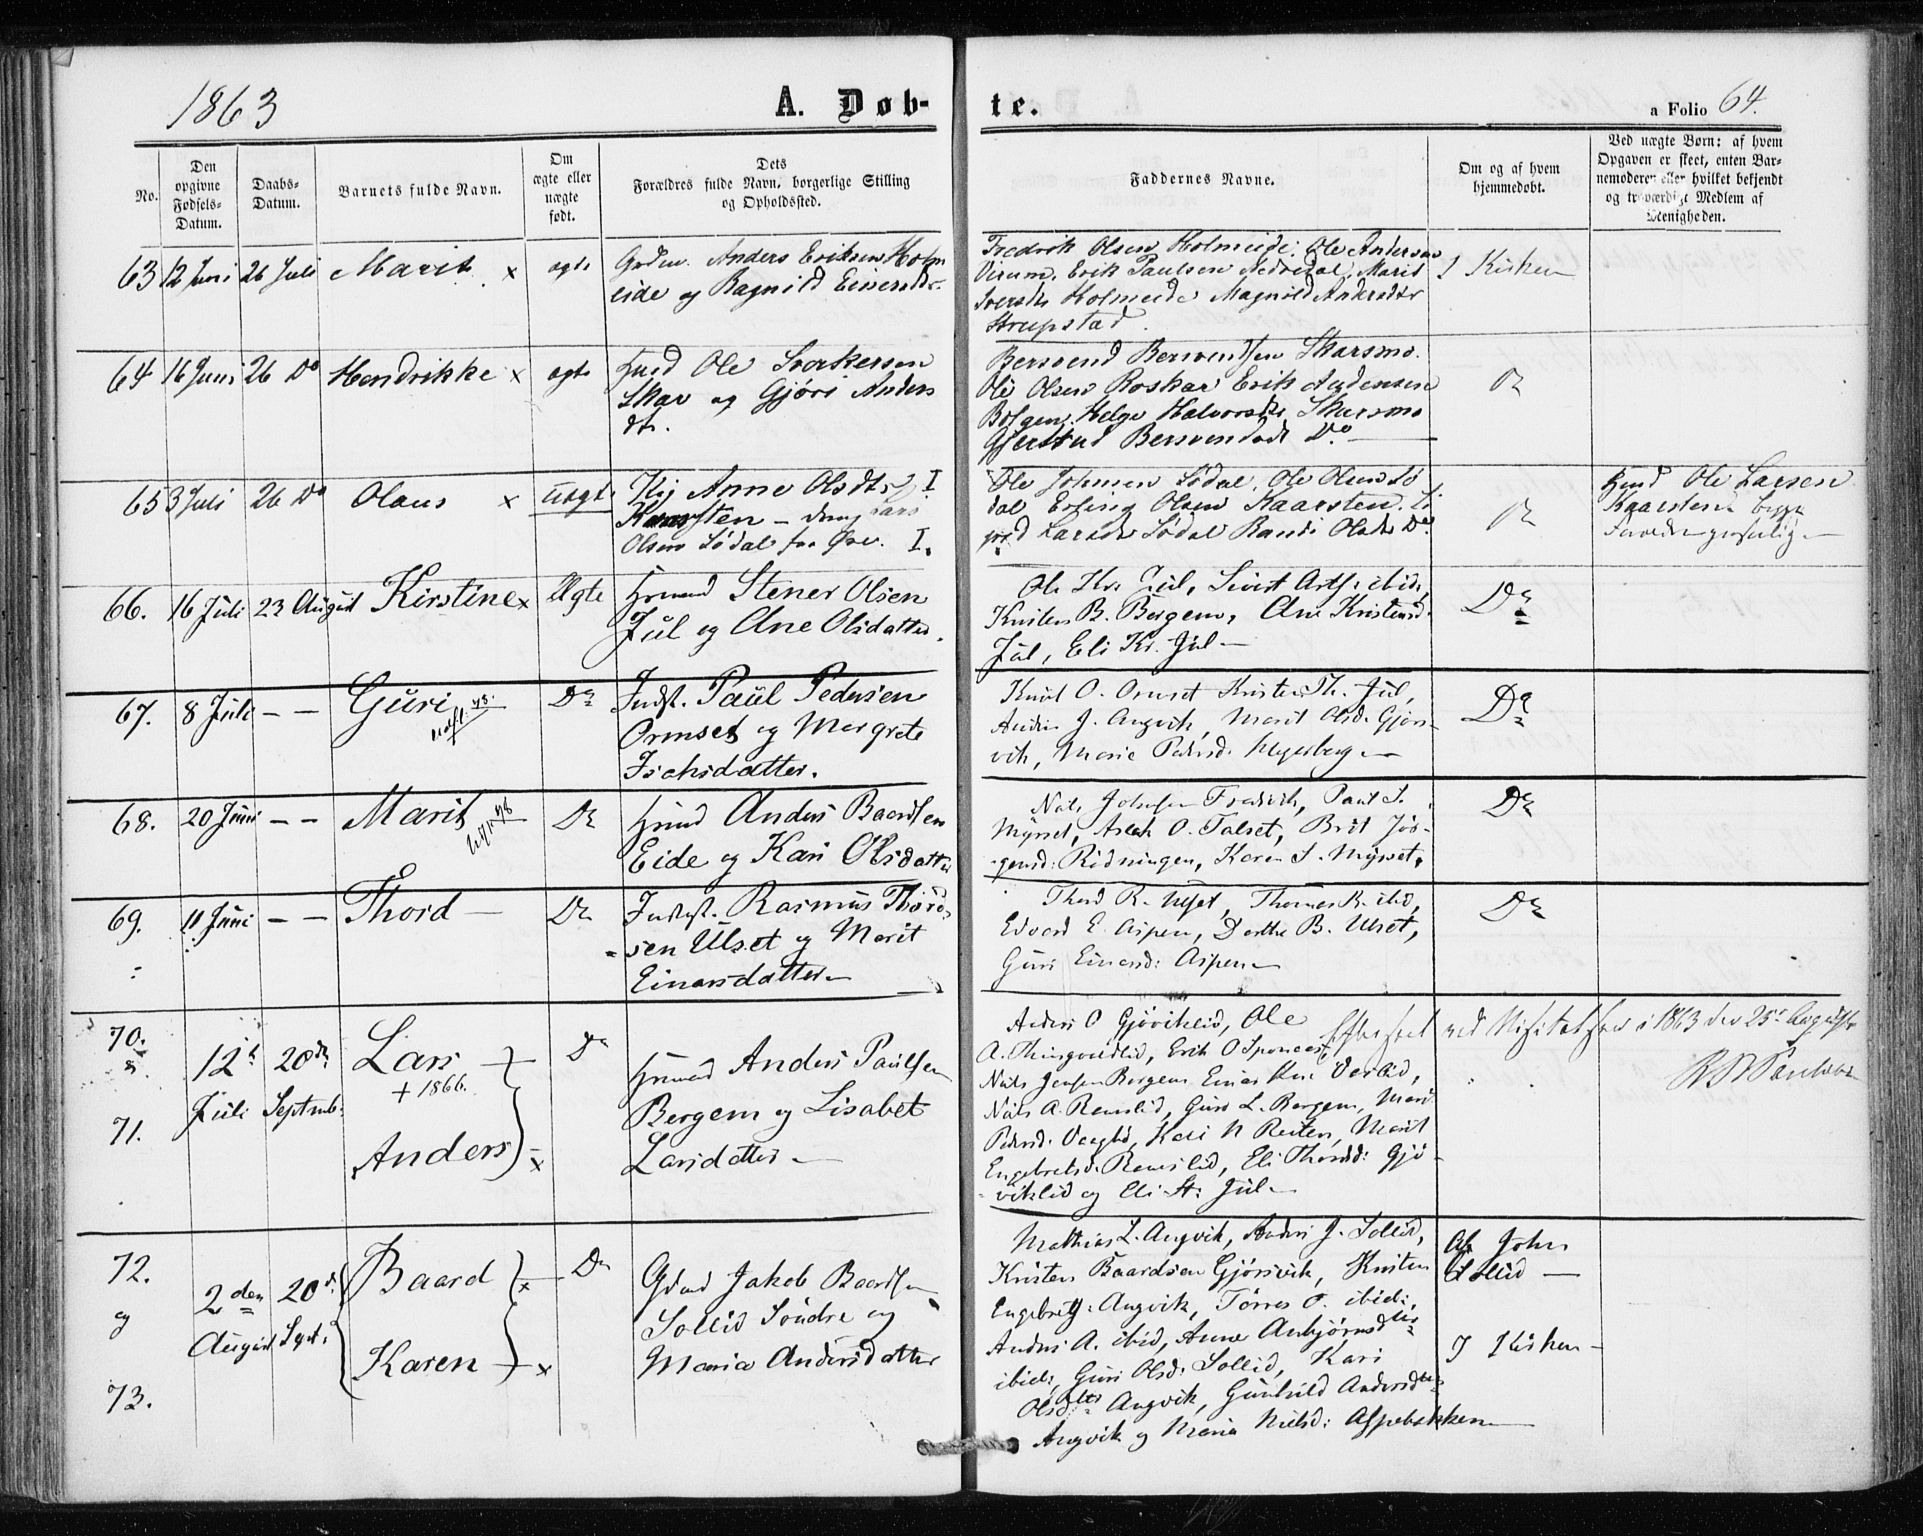 1863
A. Døb-
te.
a Folio 64.
No.
Den
opgivne
Fødsels-
Datum.
Daabs-
Datum.
Barnets fulde Navn.
Om
ægte eller
uægte
født.
Dets
Forældres fulde Navn, borgerlige Stilling
og Opholdssted.
Faddernes Navne.
Om og af hvem
hjemmedøbt.
Ved uægte Børn: af hvem
Opgaven er skeet, enten Bar-
nemoderen eller hvilket bekjendt
og troværdigt Medlem af
Menigheden.
63 12 Juni 26 Juli Marit x ægte
Anders Eriksen Holm
eide og Ragnild
Fredrik Olsen Holmeide. Ole Andersen
Virum. Erik Paulsen Nedredal, Marit
Iversdt Holmeide Magnild Andersdtr
Strupstad.
I Kirken
64 16 Juni 26 Do Hendrikke x ægte
Ole
Skar og Gjøri Anders
dt.
Bersvend Bersvendsen Skarsmo.
Ole Olsen Roskar Erik Andersen
Bolgen. Helge Halvorsdt. Skarsmo
Bersvendsdt Do
Do
65 3 Juli 26 Do Olaus x uægte
Anne Olsdtr
Kaarsten - Lars
Olsen Sødal
Ole Johnsen Sødal. Ole Olsen Sø
dal Erling Olsen Kaarsten.
Larsdt Sødal Randi Olsdt Do
Do
Ole Larsen
Kaarsten begge
66. 16 Juli 23 August Kirstine x Ægte
Stener Olsen
Jul og Ane Olsdatter.
Ole Kr. Jul, Sivert ibid,
Kristen B. Bergem, Ane Kristensd.
Jul, Eli Kr. Jul
Do
67. 8 Juli - - Guri Do
Indst. Paul Pedersen
Ormset og Margrete
Isaksdatter.
Knud O. Ormset Kristen Th. Jul,
Anders J. Angvik, Marit Olsd. Gjørs-
vik, Marie Pedersd.
Do
68. 20 Juni - - Marit Do
Anders Baardsen
Eide og Kari Olsdatter
Nils Johnsen Fredvik, Paul S.
Myrset, Aslak O. Talset, Brit Jør-
gensd: Ridningen, Karen S. Myrset,
Do
69. 11 Juni - - Thord - Do
Indst. Rasmus Thord-
sen Ulset og Marit
Einarsdatter
Thord R. Ulset, Thomas R. ibid,
Edvard E. Aspen, Dorthe B. Ulset,
Guri Einarsd: Aspen
Do
70.
&
71.
12te
Juli
20de
Septemb:
Lars
+ 1866.
Anders x
Do
Anders Paulsen
Bergem og Lisabet
Larsdatter
Anders O Gjøviklid, Ole
A. Thingvoldlid, Erik O
Nils Jensen Bergem Einar
Nils A. Remslid, Guri L. Bergem, Marit
Pedersd. Kari N Reiten, Marit
Engebretsd. Remslid, Eli Thordsd: Gjø-
viklid og Eli St: Jul
Efterseet ved Visitatsen i 1863 den 25de August
72.
og
73.
2den
August
20de
Sept.
Baard x
Karen x
Do
Jakob Baardsen
Sollid Søndre og
Maria Andersdatter
Mathias L. Angvik, Anders J. Sollid,
Kristen Baardsen Gjørsvik, Kristen
Engebrets: Angvik, Tørres O. ibid:,
Anders A. ibid, Anne Anbjørnsdtr
ibid:, Guri Olsd: Sollid, Kari
Olsdtr Angvik, Gunhild Andersdtr
Angvik og Maria Nielsd: Aspebakken
Af John
Sollid
I Kirken